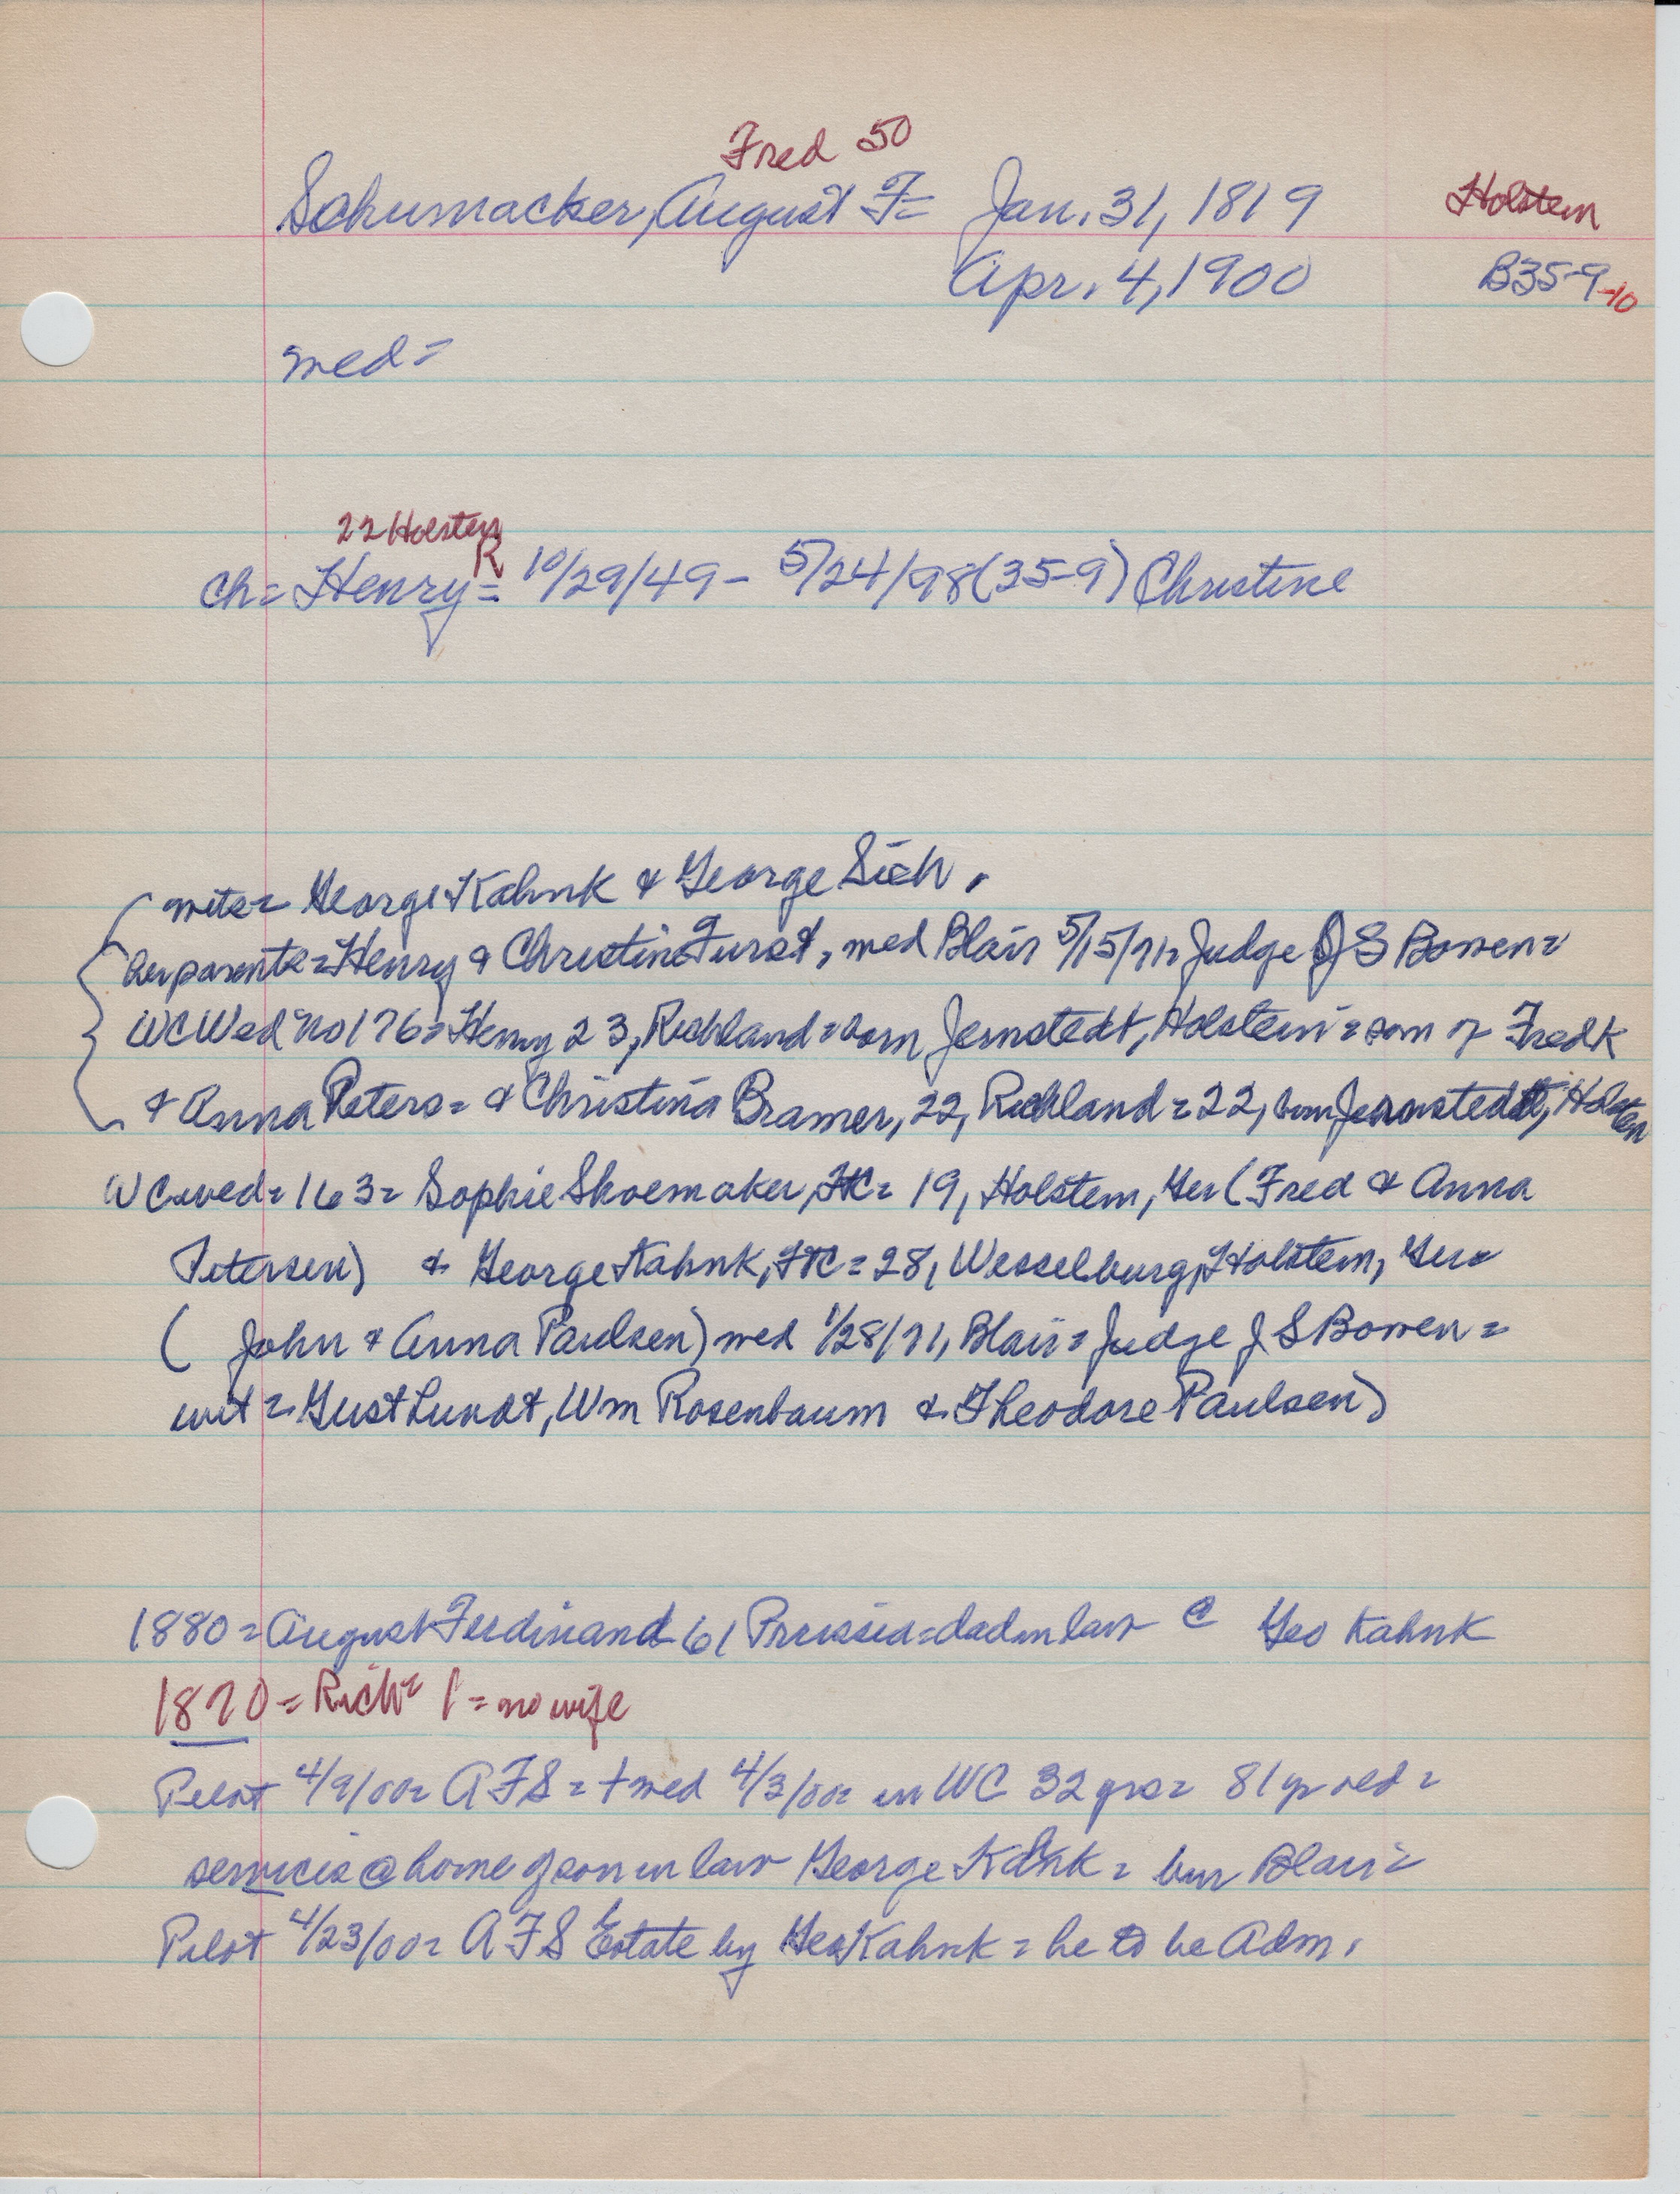 Fred 50
Schumacker, August F= Jan. 31, 1819 Holstein
Apr. 4, 1900 B35-9-10
med=
22 Holstein
R
ch= Henry= 10/29/49 - 5/24/98 (35-9) Christine
George Kahnk & George Sich.
her parents= Henry & Christine Furst, med Blair 5/15/71= Judge J S Bowen=
WC Wed no 176= Henry 23, Richland= born Jernstedt, Holstein= son of Fredk
& Anna Peters= & Christina Bramer, 22, Richland= 22, born Jernstedt, Holstein
WC wed= 163= Sophie Shoemaker, FtC= 19, Holstein, Ger (Fred & Anna
Petersen) & George Kahnk, FtC= 28, Wesselburg, Holstein, Ger=
( John & Anna Paulsen) med 1/28/71, Blair= Judge J S Bowen=
wit= Gust Lundt, Wm Rosenbaum & Theodore Paulsen)
1880= August Ferdinand 61 Prussia= dad in law @ Geo Kahnk
1870= Rich= 1= no wife
Pilot 4/9/00= A F S= + med 4/3/00= in WC 32 yrs= 81 yr old=
services @ home of son in law George Kahnk= bur Blair=
Pilot 4/23/00= A F S Estate by Geo Kahnk= he to be Adm.